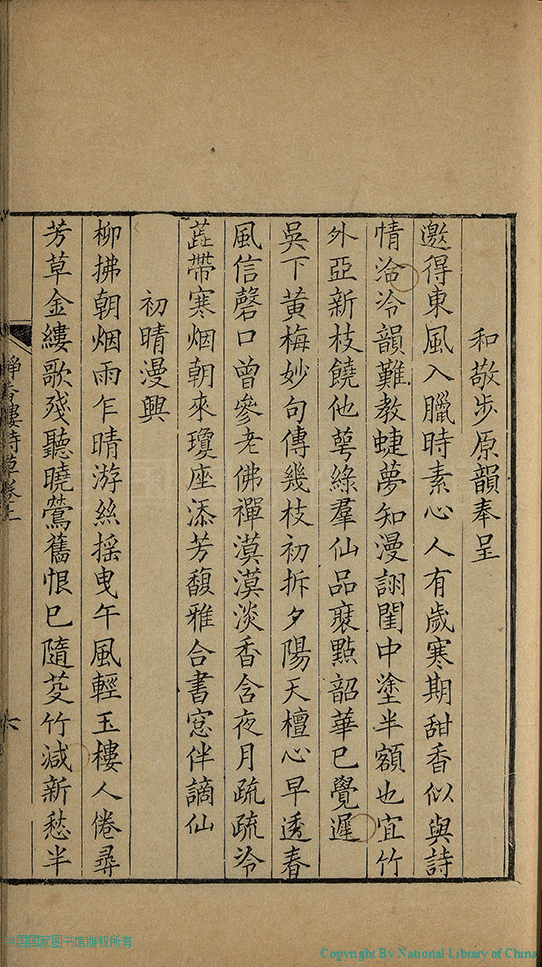 和敬步原韻奉呈
邀得東風入臘時素心人有歲寒期甜香似與詩
情洽冷韻難教蜨夢知漫詡閨中塗半額也宜竹
外亞新枝饒他萼綠羣仙品裒點韶華已覺遲
吳下黃梅妙句傳幾枝初拆夕陽天檀心早透春
風信磬口曾參老佛禪漠漠淡香含夜月疏疏冷
蕋帶寒烟朝來瓊座添芳馥雅合書窓伴謫仙
初晴漫興
柳拂朝烟雨乍晴游絲搖曳午風輕玉樓人倦尋
芳草金縷歌殘聽曉鶯舊恨已隨芟竹減新愁半
靜香樓詩草卷上
六
中国国家图书馆版权所有
Copyright By National Library of China